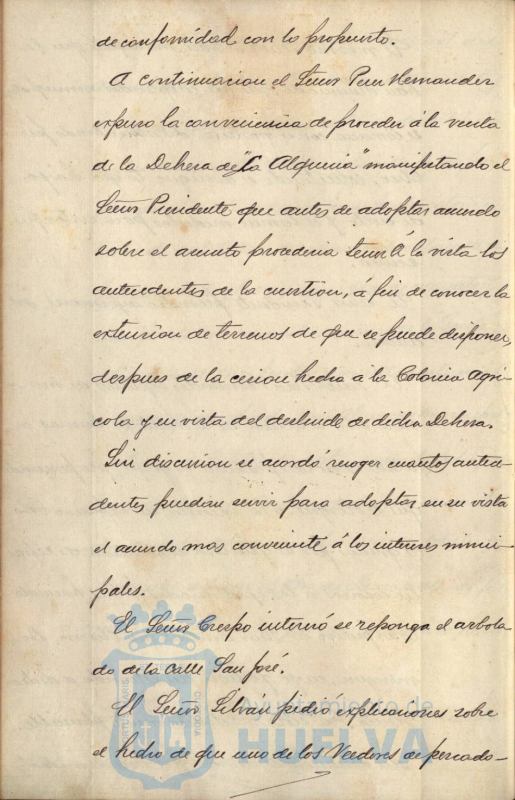 de conformidad con lo propuesto.
A continuacion el Señor Perez Hernandez
expuso la conveniencia de proceder á la venta
de la Dehesa de "La Alqueria" manifestando el
Señor Presidente que antes de adoptar acuerdo
sobre el asunto procedia tener á la vista los
antecedentes de la cuestion, á fin de conocer la
extension de terrenos de que se puede disponer,
despues de la cesion hecha á la Colonia Agri-
cola y en vista del deslinde de dicha Dehesa.
Sin discusion se acordó recoger cuantos antece-
dentes puedan servir para adoptar en su vista
el acuerdo mas conveniente á los intereses munici-
pales.
El Señor Crespo interesó se reponga el arbola
do de la Calle San José.
El Señor Silván pidió explicaciones sobre
el hecho de que uno de los Veedores de pescado-
Ayuntamiento de
HUELVA